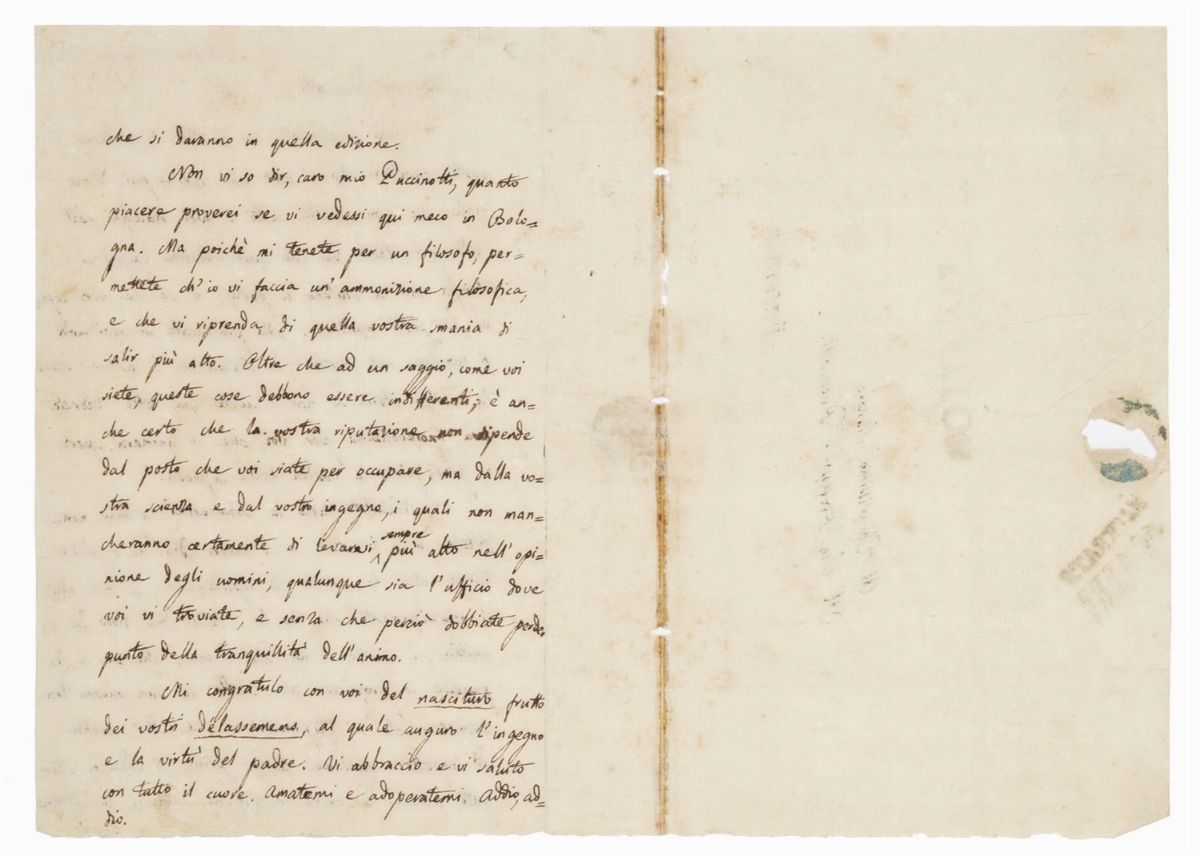 che si daranno in quella edizione.
Non vi so dir, caro mio Puccinotti, quanto
piacere proverei se vi vedessi qui meco in Bolo=
gna. Ma poichè mi tenete per un filosofo, per=
mettete ch'io vi faccia un'ammonizione filosofica,
e che vi riprenda di quella vostra smania di
salir più alto. Oltre che ad un saggio, come voi
siete, queste cose debbono essere indifferenti, è an=
che certo che la vostra riputazione non dipende
dal posto che voi siate per occupare, ma dalla vo=
stra scienza e dal vostro ingegno, i quali non man=
cheranno certamente di levarvi sempre più alto nell'opi=
nione degli uomini, qualunque sia l'ufficio dove
voi vi troviate, e senza che perciò dobbiate perder
punto della tranquillità dell'animo.
Mi congratulo con voi del nascituro frutto
dei vostri délassemens, al quale auguro l'ingegno
e la virtù del padre. Vi abbraccio e vi saluto
con tutto il cuore. Amatemi e adoperatemi. Addio, ad=
dio.